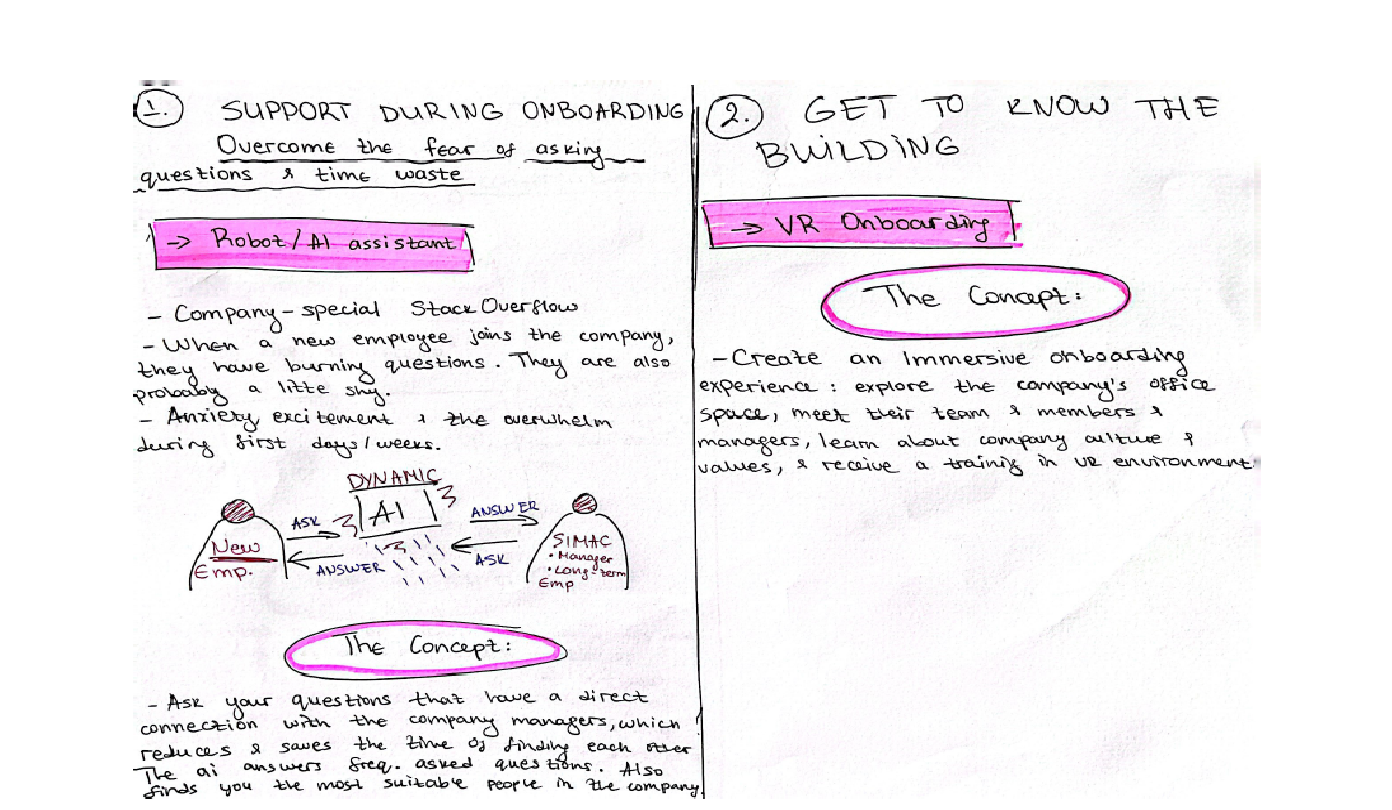 1. SUPPORT DURING ONBOARDING
Overcome the fear of asking
questions & time waste
→ Robot/AI assistant
- Company-special StackOverflow
- When a new employee joins the company,
they have burning questions. They are also
probably a litte shy.
- Anxiety, excitement & the overwhelm
during first days/weeks.
DYNAMIC
AI
ASK
ANSWER
New
Emp.
ANSWER
ASK
SIMAC
• Manager
• Long-term
Emp
The Concept:
- Ask your questions that have a direct
connection with the company managers, which
reduces & saves the time of finding each other
The ai answers freq. asked questions. Also
finds you the most suitable people in the company.
2. GET TO KNOW THE
BUILDING
→ VR Onboarding
The Concept:
- Create an immersive onboarding
experience: explore the company's office
space, meet their team & members &
managers, learn about company culture &
values, & receive a training in VR environment